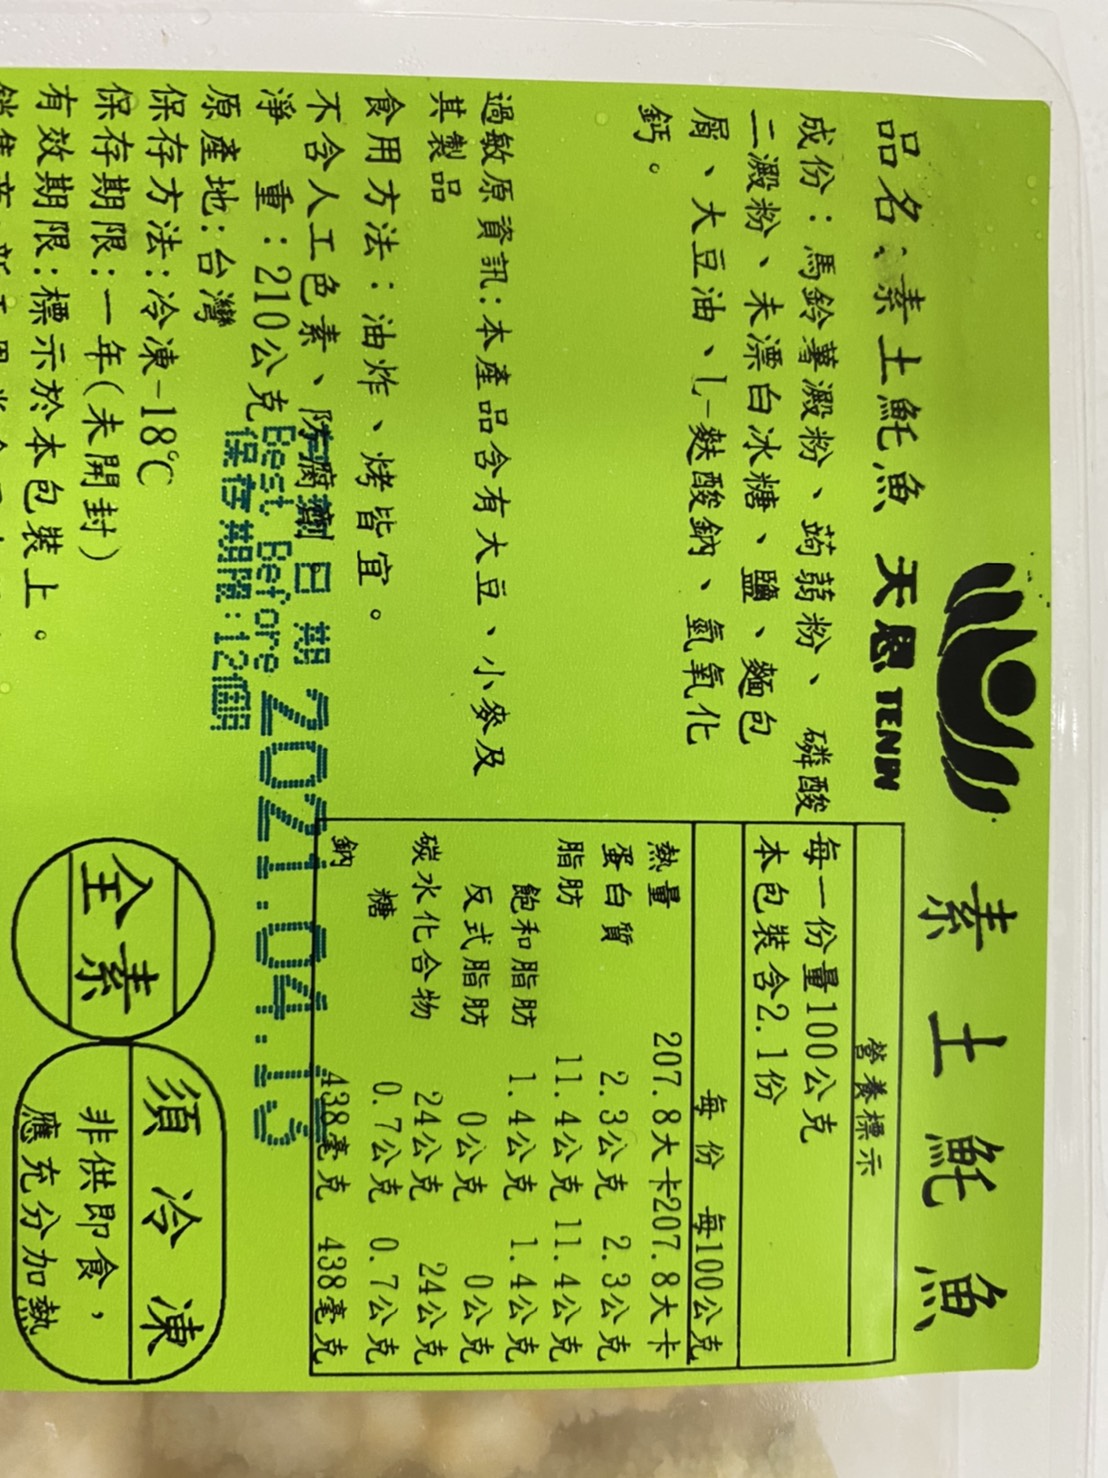 素土魠魚
品名：素土魠魚
天恩 TENIN
成份：馬鈴薯澱粉、蒟蒻粉、磷酸
二澱粉、未漂白冰糖、鹽、麵包
屑、大豆油、L-麩酸鈉、氫氧化
鈣。
過敏原資訊：本產品含有大豆、小麥及
其製品
食用方法：油炸、烤皆宜。
不含人工色素、防腐劑
淨　重：210公克
原產地：台灣
保存方法：冷凍-18℃
保存期限：一年(未開封)
有效期限：標示於本包裝上。
日期
Best Before 2021.04.13
保存期限：12個月
營養標示
每一份量100公克
本包裝含2.1份
每份 每100公克
熱量 207.8大卡 207.8大卡
蛋白質 2.3公克 2.3公克
脂肪 11.4公克 11.4公克
飽和脂肪 1.4公克 1.4公克
反式脂肪 0公克 0公克
碳水化合物 24公克 24公克
糖 0.7公克 0.7公克
鈉 438毫克 438毫克
全素
須冷凍
非供即食，
應充分加熱